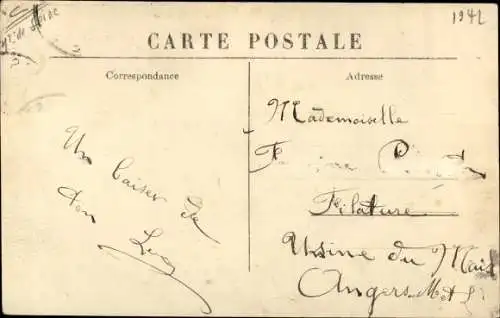 1942
CARTE POSTALE
Correspondance
Adresse
Un baiser de
ton Luc
Mademoiselle
Filature
Usine du Mail
Angers M et L